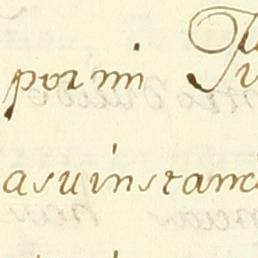 por mi
asuinstanc